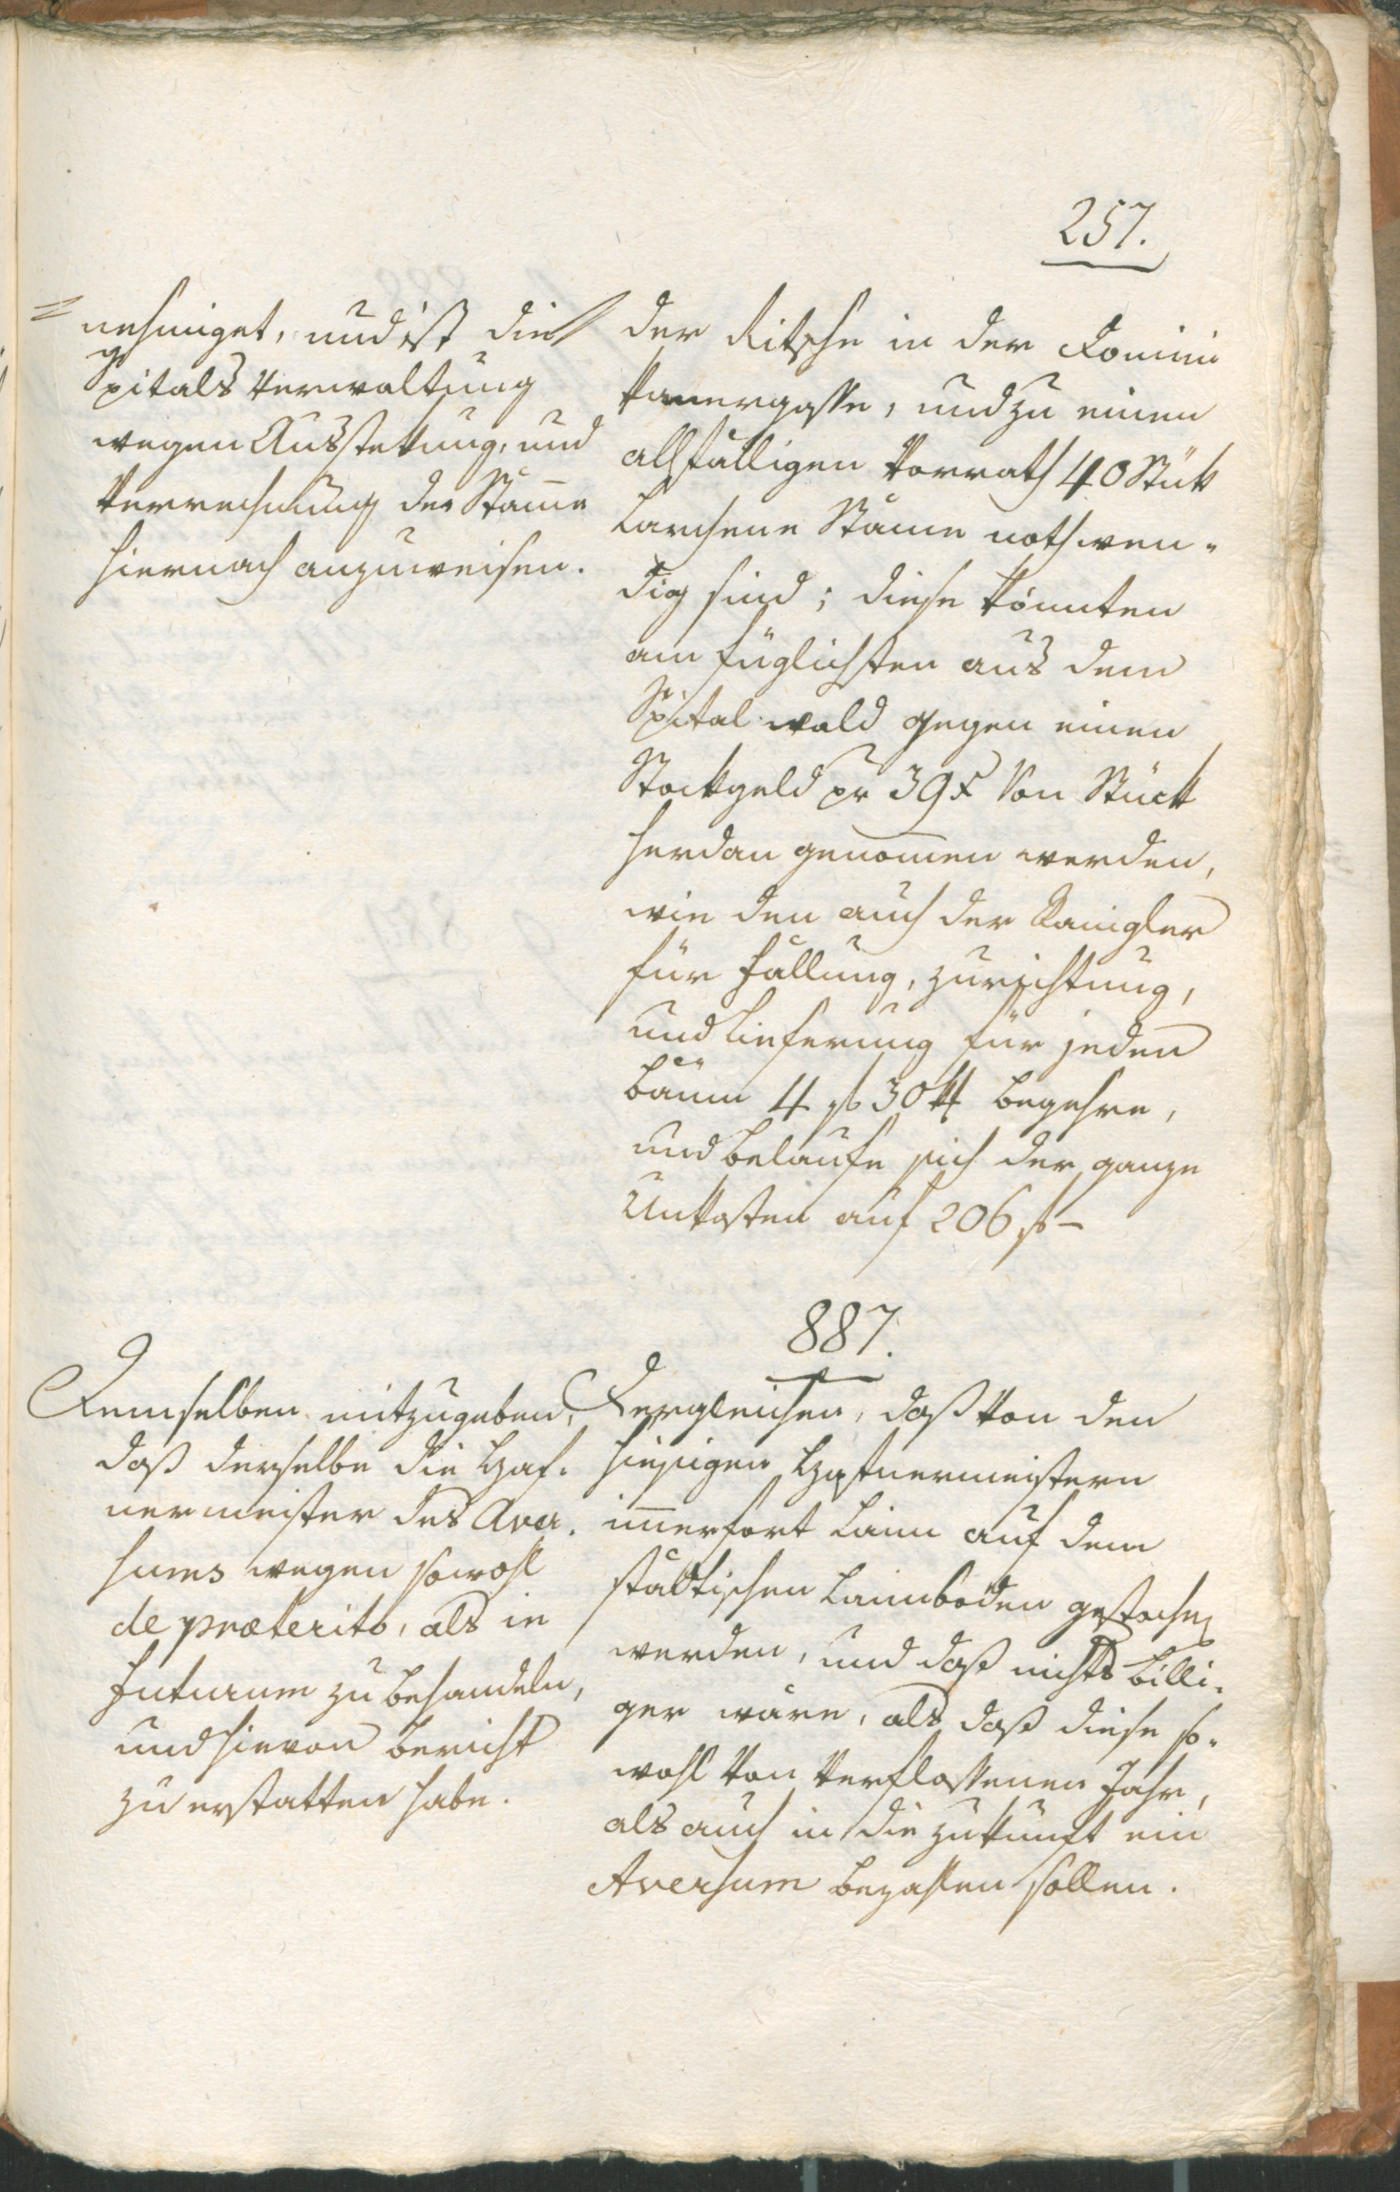 257.
= nehmiget, und ist die
Spitals Verwaltung
wegen Ausstekung, und
Verrechnung der Stäme
hiernach anzuweisen.
der Ritsche in der Domini
kanergasse, und zu einen
allfälligen Vorrath 40 Stük
Lärchene Stäme nothwen-
dig sind; diese könnten
am füglichsten aus dem
Spital wald gegen einen
Stockgeld pr 39 x Von Stück
herdan genomen werden,
wie den auch der
für Fällung, Zurichtung,
und Lieferung für jeden
Baum 4 f 30 x begehre,
und belaufe sich der ganze
Unkosten auf 206 f –
887.
Demselben mitzugeben,
daß derselbe die Haf-
nermeister des Aver-
sums wegen sowohl
de præterito, als in
futurum zu behandeln,
und hievon Bericht
zu erstatten habe.
Dergleichen, daß von den
hiesigen Hafnermeistern
imerfort Laim auf dem
städtischen Laimboden gestochen
werden, und daß nichts billi-
ger wäre, als daß diese so-
wohl von verflossenen Jahr,
als auch in die Zukunft ein
Aversum bezahlen sollen.